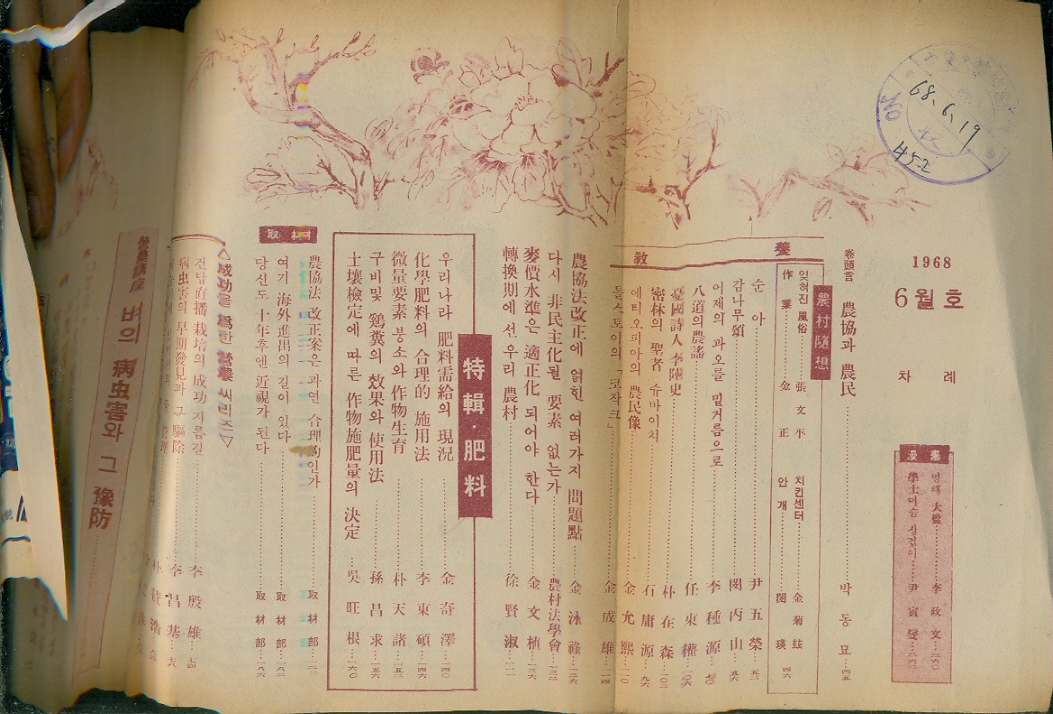 68. 6. 19
452
1968
6월호
차례
漫畫
李政文……二六〇
尹寅燮……二六二
卷頭言 農協과 農民……박동묘……四五
教養
農村隨想
잊혀진 風俗……張文平 치킨센터……金菊
作業……金正 안개……閔瑛 四六
순아……尹五榮…五二
감나무頌……閔丙山…五六
어제의 과오를 밑거름으로……李種源
八道의 農謠……任東權
憂國詩人 李陸史……朴在森…一〇三
密林의 聖者 슈바이처……石庸源…九六
에티오피아의 農民像……金允熙…一一〇
톨스토이의 「코작크」……金成雄…一一四
農協法改正에 얽힌 여러가지 問題點……金泳祿…一二六
다시 非民主化될 要素 없는가……農村法學會…一三二
麥價水準은 適正化 되어야 한다……金文植…一三六
轉換期에 선 우리 農村……徐賢淑
特輯·肥料
우리나라 肥料需給의 現況……金奇澤…一四〇
化學肥料의 合理的 施用法……李東碩…一四六
微量要素 붕소와 作物生育……朴天諸…一五二
구비및 鷄糞의 效果와 使用法……孫昌求…一五六
土壤檢定에 따른 作物施肥量의 決定……吳旺根…一六〇
取材
農協法 改正案은 과연 合理的인가……取材部
여기 海外進出의 길이 있다……取材部…一八二
당신도 十年후엔 近視가 된다……取材部…一八六
△成功을 爲한 營農 씨리즈▽
건답直播 栽培의 成功 지름길……李殷雄
病虫害의 早期發見과 그 驅除……李昌基
營農講座 벼의 病虫害와 그 豫防